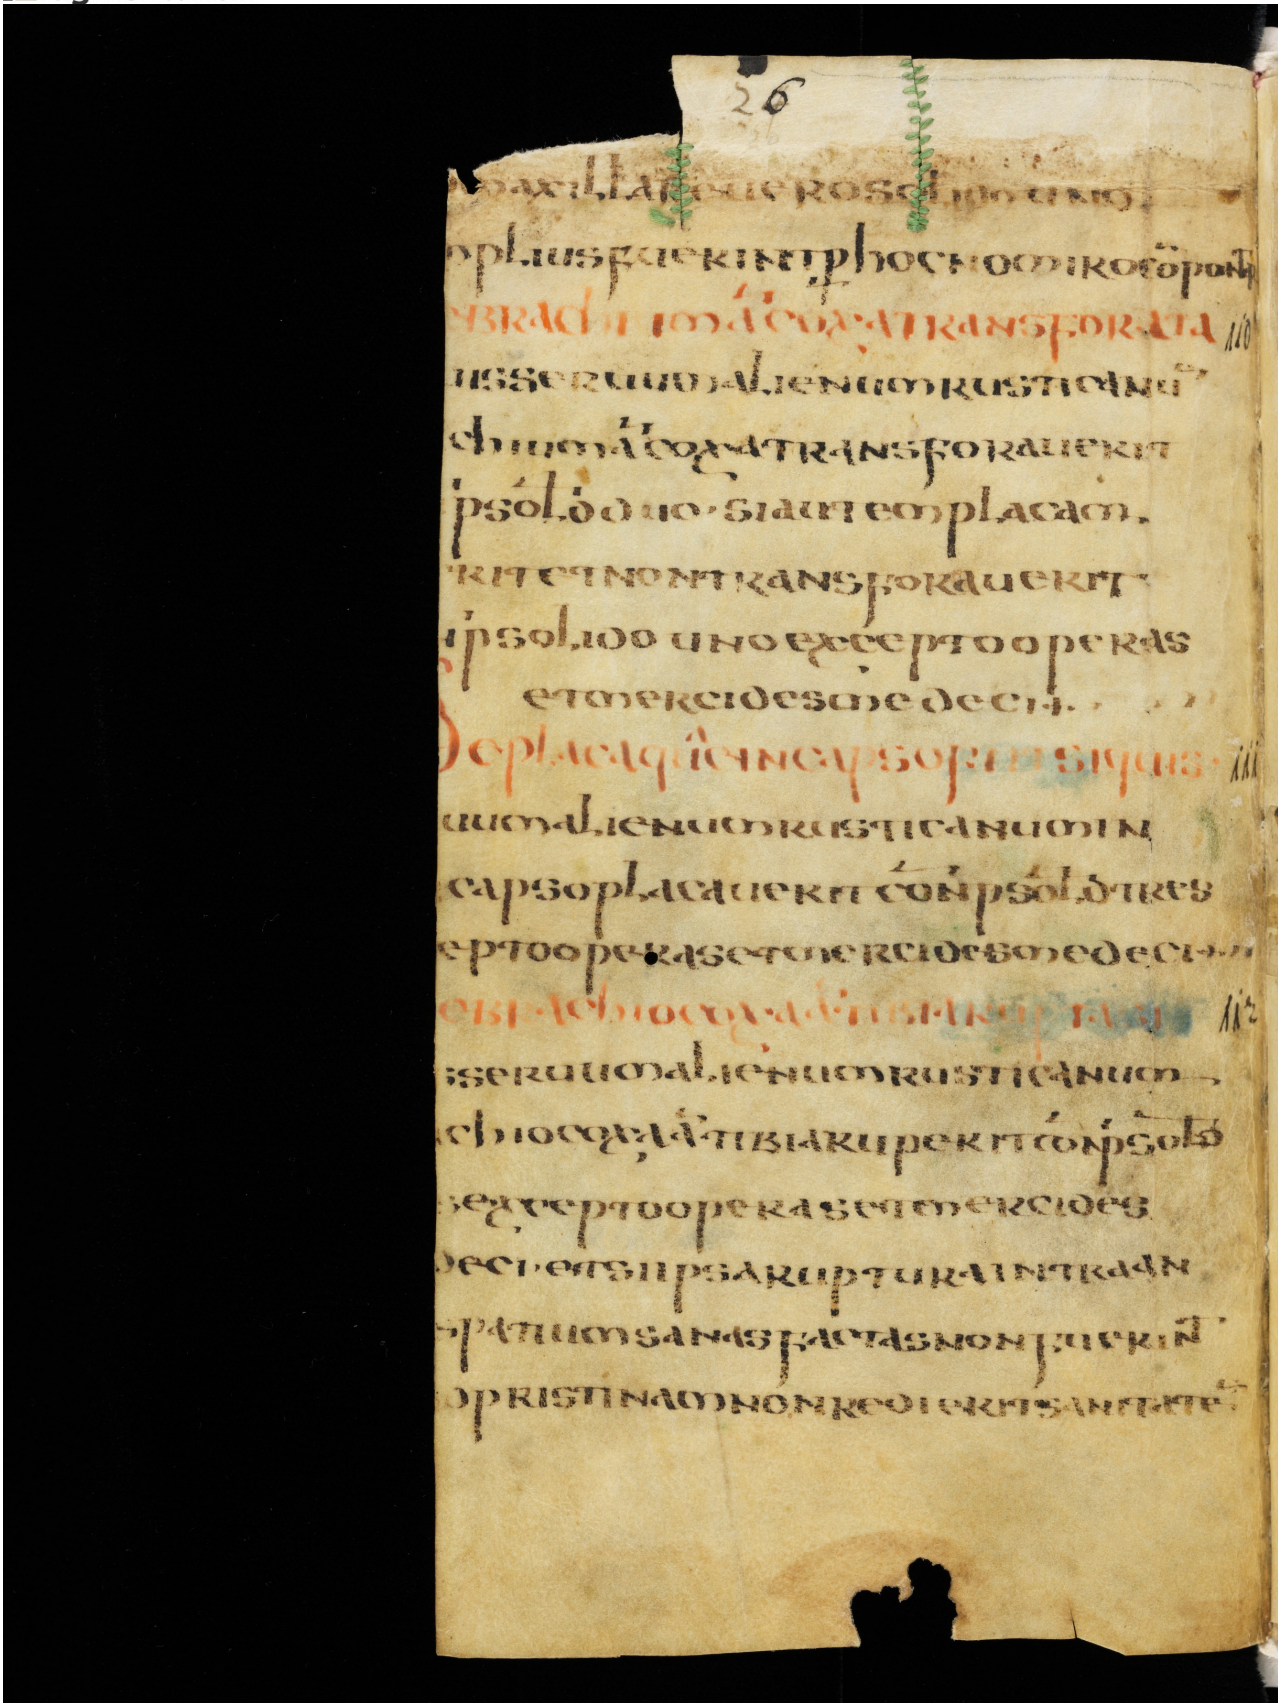 26
maxillari uero solido uno
pliusfuerintphocnomirocōponat
ebrachiumāᵗcoxatransforata 110
uisseruumalienumrusticanū
chiumāᵗcoxatransforauerit
ṅpsol̄d duo · siautemplacam
rit et nontransforauerit
ṅpsolido uno exceptooperas
etmercidesmedeci
deplacaquęincapsofuerit siquis 111
uumalienumrusticanumin
capsoplacauerit cōṅpsol̄dtres
eptooperasetmercidesmedeci
ebrachiocoxaāᵗtibiarupta si 112
sseruumalienumrusticanum
chiocoxaāᵗtibiaruperitcōṅpsol̄d
sexceptooperasetmercides
deci · etsiipsarupturaintraan
spatiumsanasfactasnonfuerint̄
pristinamnonredieritsanitatē